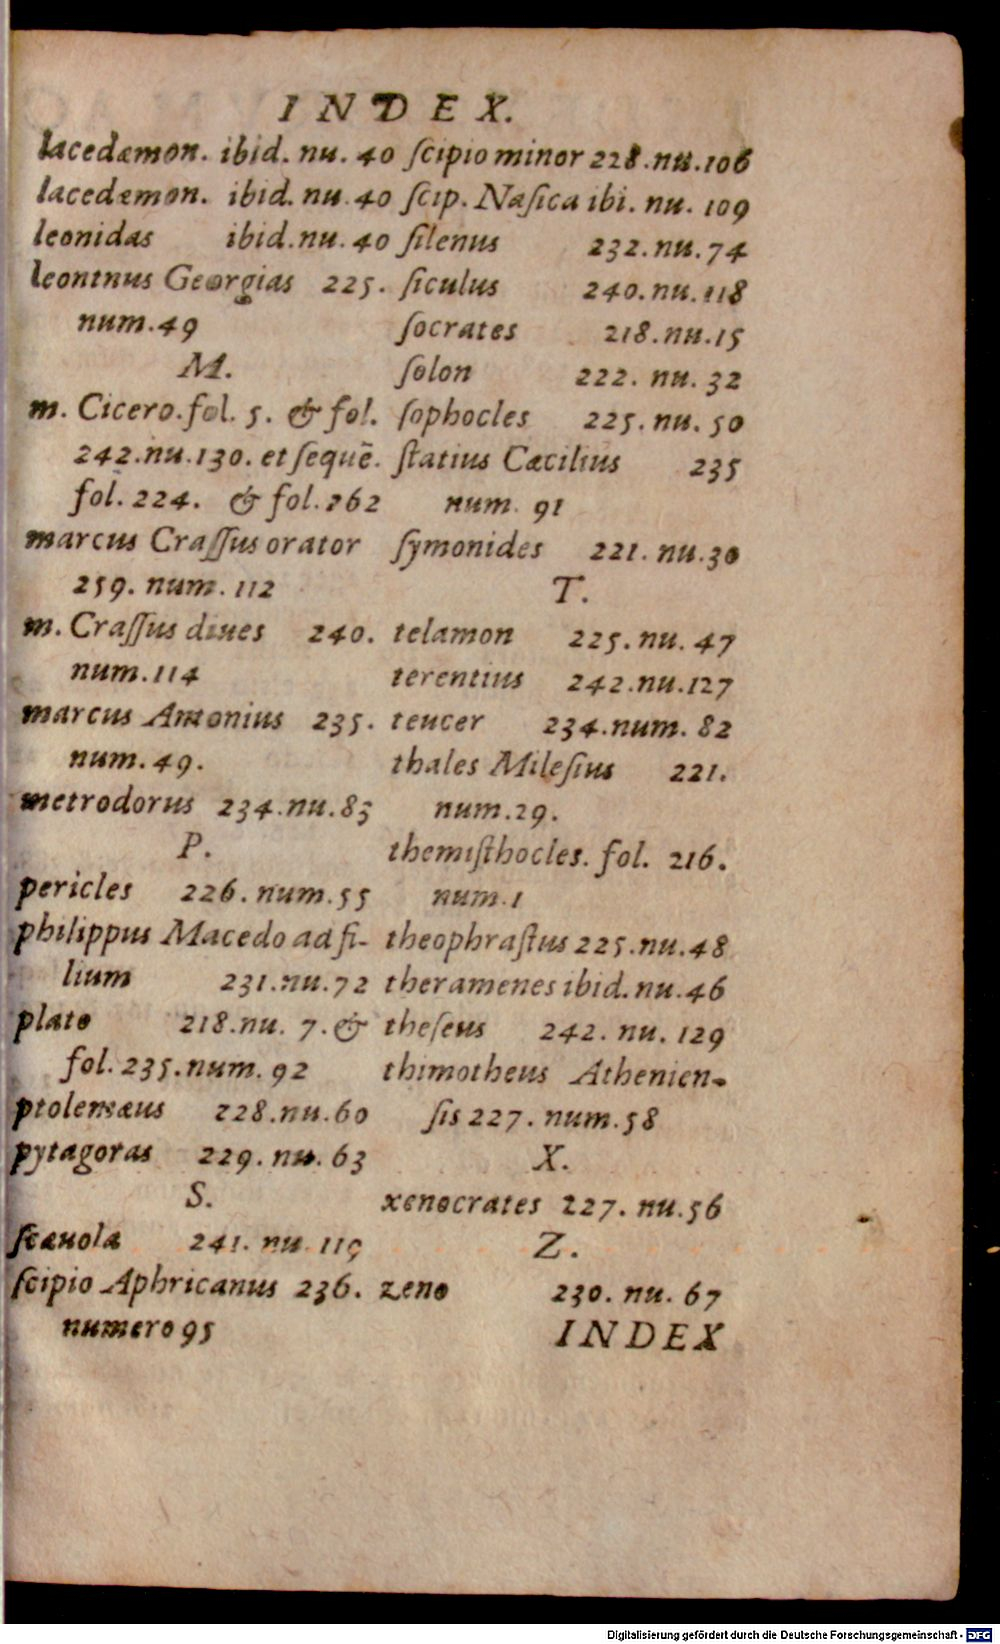 INDEX.
lacedæmon. ibid. nu. 40
lacedæmon. ibid. nu. 40
leonidas ibid. nu. 40
leontnus Georgias 225.
num. 49
M.
m. Cicero. fol. 5. & fol.
242. nu. 130. et ſequẽ.
fol. 224. & fol. 262
marcus Craſſus orator
259. num. 112
m. Craſſus diues 240.
num. 114
marcus Antonius 235.
num. 49.
metrodorus 234. nu. 83
P.
pericles 226. num. 55
philippus Macedo ad fi-
lium 231. nu. 72
plato 218. nu. 7. &
fol. 235. num. 92
ptolemæus 228. nu. 60
pytagoras 229. nu. 63
S.
ſcæuola 241. nu. 119
ſcipio Aphricanus 236.
numero 95
ſcipio minor 228. nu. 106
ſcip. Naſica ibi. nu. 109
ſilenus 232. nu. 74
ſiculus 240. nu. 118
ſocrates 218. nu. 15
ſolon 222. nu. 32
ſophocles 225. nu. 50
ſtatius Cæcilius 235
num. 91
ſymonides 221. nu. 30
T.
telamon 225. nu. 47
terentius 242. nu. 127
teucer 234. num. 82
thales Mileſius 221.
num. 29.
themiſthocles. fol. 216.
num. 1
theophraſtus 225. nu. 48
theramenes ibid. nu. 46
theſeus 242. nu. 129
thimotheus Athenien-
ſis 227. num. 58
X.
xenocrates 227. nu. 56
Z.
zeno 230. nu. 67
INDEX
Digitalisierung gefördert durch die Deutsche Forschungsgemeinschaft - DFG